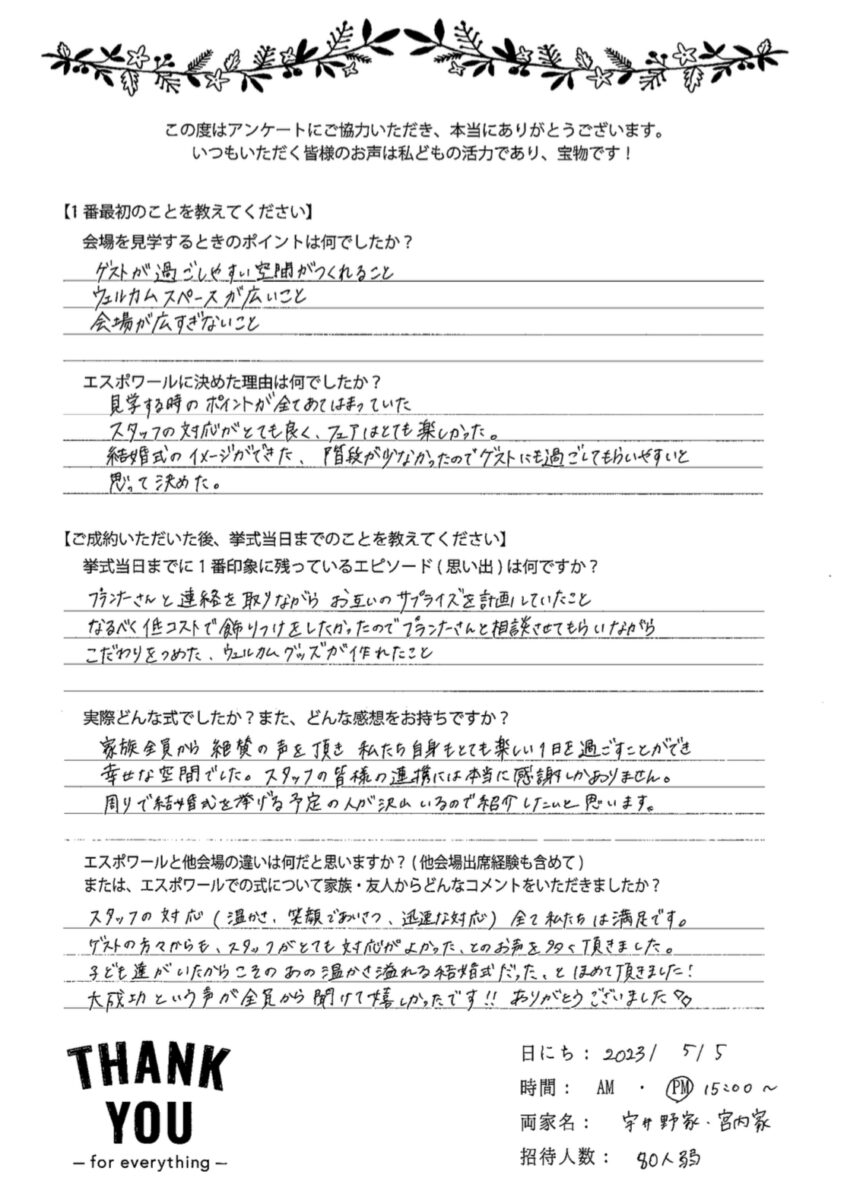 この度はアンケートにご協力いただき、本当にありがとうございます。
いつもいただく皆様のお声は私どもの活力であり、宝物です！
【1番最初のことを教えてください】
会場を見学するときのポイントは何でしたか？
ゲストが過ごしやすい空間がつくれること
ウェルカムスペースが広いこと
会場が広すぎないこと
エスポワールに決めた理由は何でしたか？
見学する時のポイントが全てあてはまっていた
スタッフの対応がとても良く、フェアはとても楽しかった。
結婚式のイメージができた、階段が少なかったのでゲストにも過ごしてもらいやすいと
思って決めた。
【ご成約いただいた後、挙式当日までのことを教えてください】
挙式当日までに1番印象に残っているエピソード(思い出)は何ですか？
プランナーさんと連絡を取りながらお互いのサプライズを計画していたこと
なるべく低コストで飾りつけをしたかったのでプランナーさんと相談させてもらいながら
こだわりをつめた、ウェルカムグッズが作れたこと
実際どんな式でしたか？また、どんな感想をお持ちですか？
家族全員から絶賛の声を頂き 私たち自身もとても楽しい1日を過ごすことができ
幸せな空間でした。スタッフの皆様の連携には本当に感謝しかありません。
周りで結婚式を挙げる予定の人が沢山いるので紹介したいと思います。
エスポワールと他会場の違いは何だと思いますか？(他会場出席経験も含めて)
または、エスポワールでの式について家族・友人からどんなコメントをいただきましたか？
スタッフの対応(温かさ、笑顔であいさつ、迅速な対応)全て私たちは満足です。
ゲストの方々からも、スタッフがとても対応がよかった、とのお声を多く頂きました。
子ども達がいたからこそのあの温かさ溢れる結婚式だった、とほめて頂きました！
大成功という声が全員から聞けて嬉しかったです!! ありがとうございました♡♡
THANK
YOU
– for everything –
日にち： 2023/ 5/5
時間： AM ・ PM 15:00〜
両家名： 宇井野家・宮内家
招待人数： 80人弱